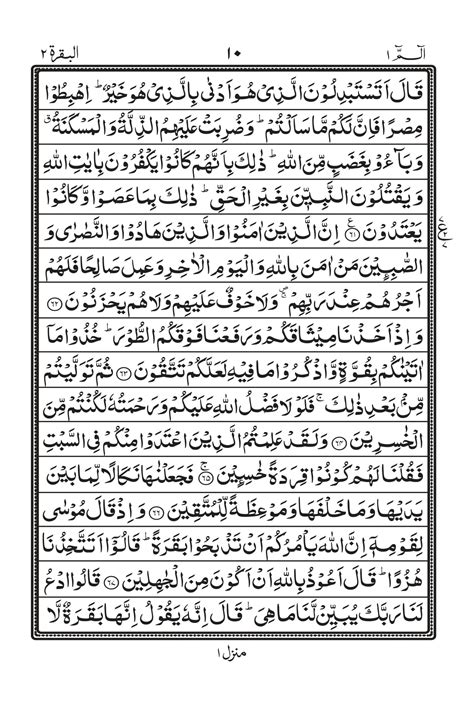 الٓمّٓ ١ ١٠ البقرة ٢
قَالَ اَتَسْتَبْدِلُوْنَ الَّذِیْ هُوَ اَدْنٰی بِالَّذِیْ هُوَ خَیْرٌ ؕ اِهْبِطُوْا
مِصْرًا فَاِنَّ لَكُمْ مَّا سَاَلْتُمْ ؕ وَ ضُرِبَتْ عَلَیْهِمُ الذِّلَّةُ وَ الْمَسْكَنَةُ ۗ
وَ بَآءُوْ بِغَضَبٍ مِّنَ اللّٰهِ ؕ ذٰلِكَ بِاَنَّهُمْ كَانُوْا یَكْفُرُوْنَ بِاٰیٰتِ اللّٰهِ
وَ یَقْتُلُوْنَ النَّبِیّٖنَ بِغَیْرِ الْحَقِّ ؕ ذٰلِكَ بِمَا عَصَوْا وَّ كَانُوْا
یَعْتَدُوْنَ ﴿۶۱﴾ اِنَّ الَّذِیْنَ اٰمَنُوْا وَ الَّذِیْنَ هَادُوْا وَ النَّصٰرٰی وَ
الصّٰبِـِٕیْنَ مَنْ اٰمَنَ بِاللّٰهِ وَ الْیَوْمِ الْاٰخِرِ وَ عَمِلَ صَالِحًا فَلَهُمْ
اَجْرُهُمْ عِنْدَ رَبِّهِمْ ۪ۚ وَ لَا خَوْفٌ عَلَیْهِمْ وَ لَا هُمْ یَحْزَنُوْنَ ﴿۶۲﴾
وَ اِذْ اَخَذْنَا مِیْثَاقَكُمْ وَ رَفَعْنَا فَوْقَكُمُ الطُّوْرَ ؕ خُذُوْا مَاۤ
اٰتَیْنٰكُمْ بِقُوَّةٍ وَّ اذْكُرُوْا مَا فِیْهِ لَعَلَّكُمْ تَتَّقُوْنَ ﴿۶۳﴾ ثُمَّ تَوَلَّیْتُمْ
مِّنْۢ بَعْدِ ذٰلِكَ ۚ فَلَوْ لَا فَضْلُ اللّٰهِ عَلَیْكُمْ وَ رَحْمَتُهٗ لَكُنْتُمْ مِّنَ
الْخٰسِرِیْنَ ﴿۶۴﴾ وَ لَقَدْ عَلِمْتُمُ الَّذِیْنَ اعْتَدَوْا مِنْكُمْ فِی السَّبْتِ
فَقُلْنَا لَهُمْ كُوْنُوْا قِرَدَةً خٰسِـِٕیْنَ ﴿۶۵﴾ۚ فَجَعَلْنٰهَا نَكَالًا لِّمَا بَیْنَ
یَدَیْهَا وَ مَا خَلْفَهَا وَ مَوْعِظَةً لِّلْمُتَّقِیْنَ ﴿۶۶﴾ وَ اِذْ قَالَ مُوْسٰی
لِقَوْمِهٖۤ اِنَّ اللّٰهَ یَاْمُرُكُمْ اَنْ تَذْبَحُوْا بَقَرَةً ؕ قَالُوْۤا اَتَتَّخِذُنَا
هُزُوًا ؕ قَالَ اَعُوْذُ بِاللّٰهِ اَنْ اَكُوْنَ مِنَ الْجٰهِلِیْنَ ﴿۶۷﴾ قَالُوا ادْعُ
لَنَا رَبَّكَ یُبَیِّنْ لَّنَا مَا هِیَ ؕ قَالَ اِنَّهٗ یَقُوْلُ اِنَّهَا بَقَرَةٌ لَّا
منزل ١